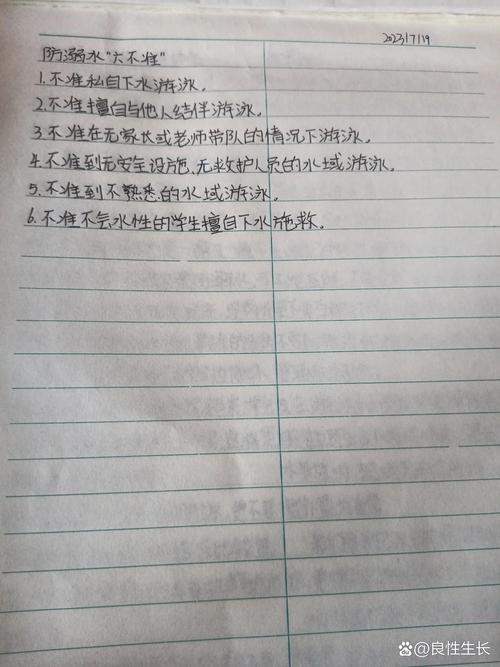 2023/7/19
防溺水“六不准”
1.不准私自下水游泳。
2.不准擅自与他人结伴游泳。
3.不准在无家长或老师带队的情况下游泳。
4.不准到无安全设施、无救护人员的水域游泳。
5.不准到不熟悉的水域游泳。
6.不准不会水性的学生擅自下水施救。
@良性生长